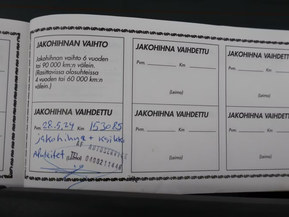 JAKOHIHNAN VAIHTO
Jakohihnan vaihto 6 vuoden
tai 90 000 km:n välein.
(Rasittavissa olosuhteissa
4 vuoden tai 60 000 km:n
välein.)
JAKOHIHNA VAIHDETTU
Pvm. Km
(Leima)
JAKOHIHNA VAIHDETTU
Pvm. Km
(Leima)
JAKOHIHNA VAIHDETTU
Pvm. 08.5.24 Km 153085
jakohihna +
(Leima)
JAKOHIHNA VAIHDETTU
Pvm. Km
(Leima)
JAKOHIHNA VAIHDETTU
Pvm. Km
(Leima)